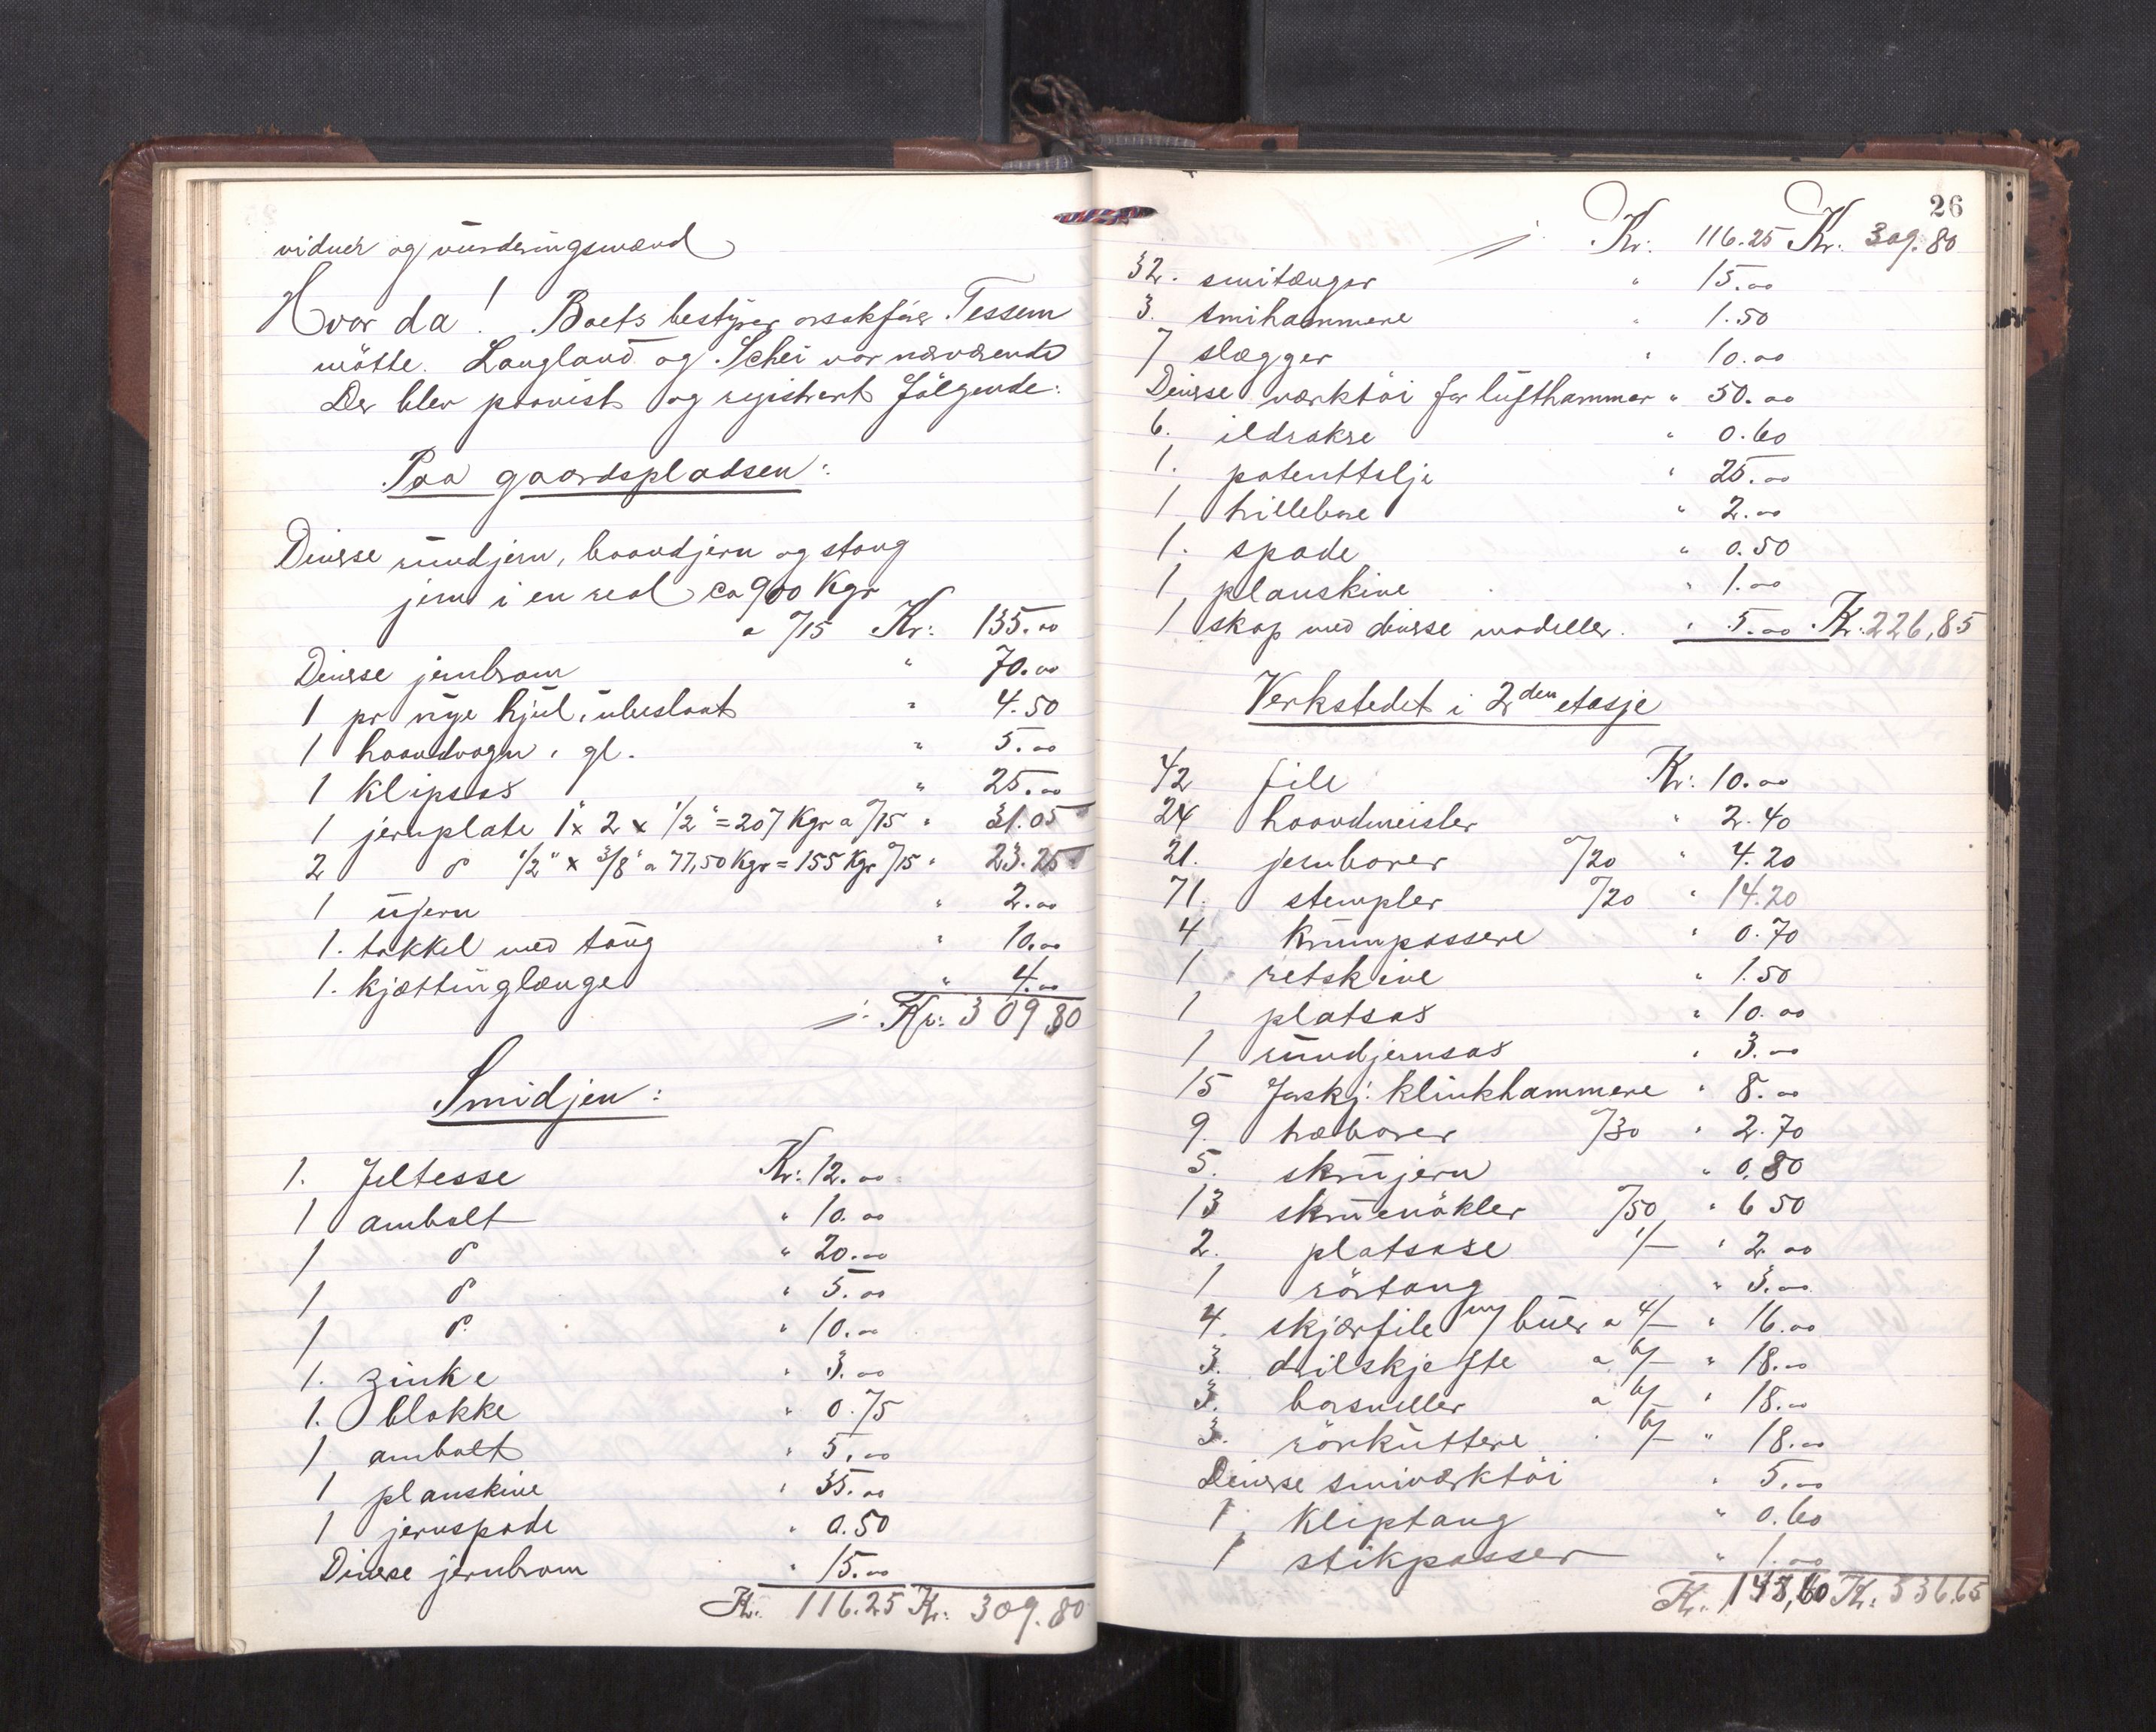 vidner og vurderingsmænd
Hvor da! Boets bestyrer orsakfører Tessem
mötte. Langland og Schei var nærværende
Der blev paavist og registrert fölgende:
Paa gaardspladsen:
Diverse rundjern, baandjern og stang
jern i en reol ca 900 Kgr
a 0/15 Kr: 135.00
Diverse jernbrom " 70.00
1 pr nye hjul, ubeslaat " 4.50
1 haandvogn, gl. " 5.00
1 klipsax " 25.00
1 jernplate 1" x 2 x 1/2" = 207 Kgr a 0/15 " 31.05
2 do 1/2" x 3/8" a 77,50 Kgr = 155 Kgr 0/15 " 23.25
1 ujern " 2.00
1. takkel med taug " 10.00
1. kjættinglænge " 4.00
Kr: 309.80
Smidjen:
1. Feltesse Kr: 12.00
1 ambolt " 10.00
1 do " 20.00
1 do " 5.00
1 do " 10.00
1. zinke " 3.00
1. blokke " 0.75
1 ambolt " 5.00
1 planskive " 35.00
1 jernspade " 0.50
Diverse jernbrom " 15.00
Kr. 116.25 Kr. 309.80
26
Kr: 116.25 Kr: 309.80
32. smitænger " 15.00
3. smihammere " 1.50
7 slægger " 10.00
Diverse værktöi for lufthammer " 50.00
6. ildrakre " 0.60
1. patenttalje " 25.00
1 trillebør " 2.00
1. spade " 0.50
1 planskive " 1.00
1 skap med diverse modeller. " 5.00 Kr. 226,85
Verkstedet i 2den etasje
42 file Kr: 10.00
24 haandmeisler " 2.40
21. jernborer 0/20 " 4.20
71. stempler 0/20 " 14.20
4 Krumpassere " 0.70
1 retskive " 1.50
1 platsax " 10.00
1 rundjernsax " 3.00
15 forskj. klinkhammere " 8.00
9. træborer 0/30 " 2.70
5. skrujern " 0.80
13 skruenökler 0/50 " 6 50
2. platsaxe 1/- " 2.00
1 rörtang " 3.00
4. skjærfile m/ buer a 4/- " 16.00
3. drilskjefte a 6/- " 18.00
3. borsneller a 6/- " 18.00
3. rörkuttere 6/- " 18.00
Diverse smiværktöi " 5.00
1 kliptang " 0.60
1 stikpasser " 1.00
Kr. 147,60 Kr. 536.65